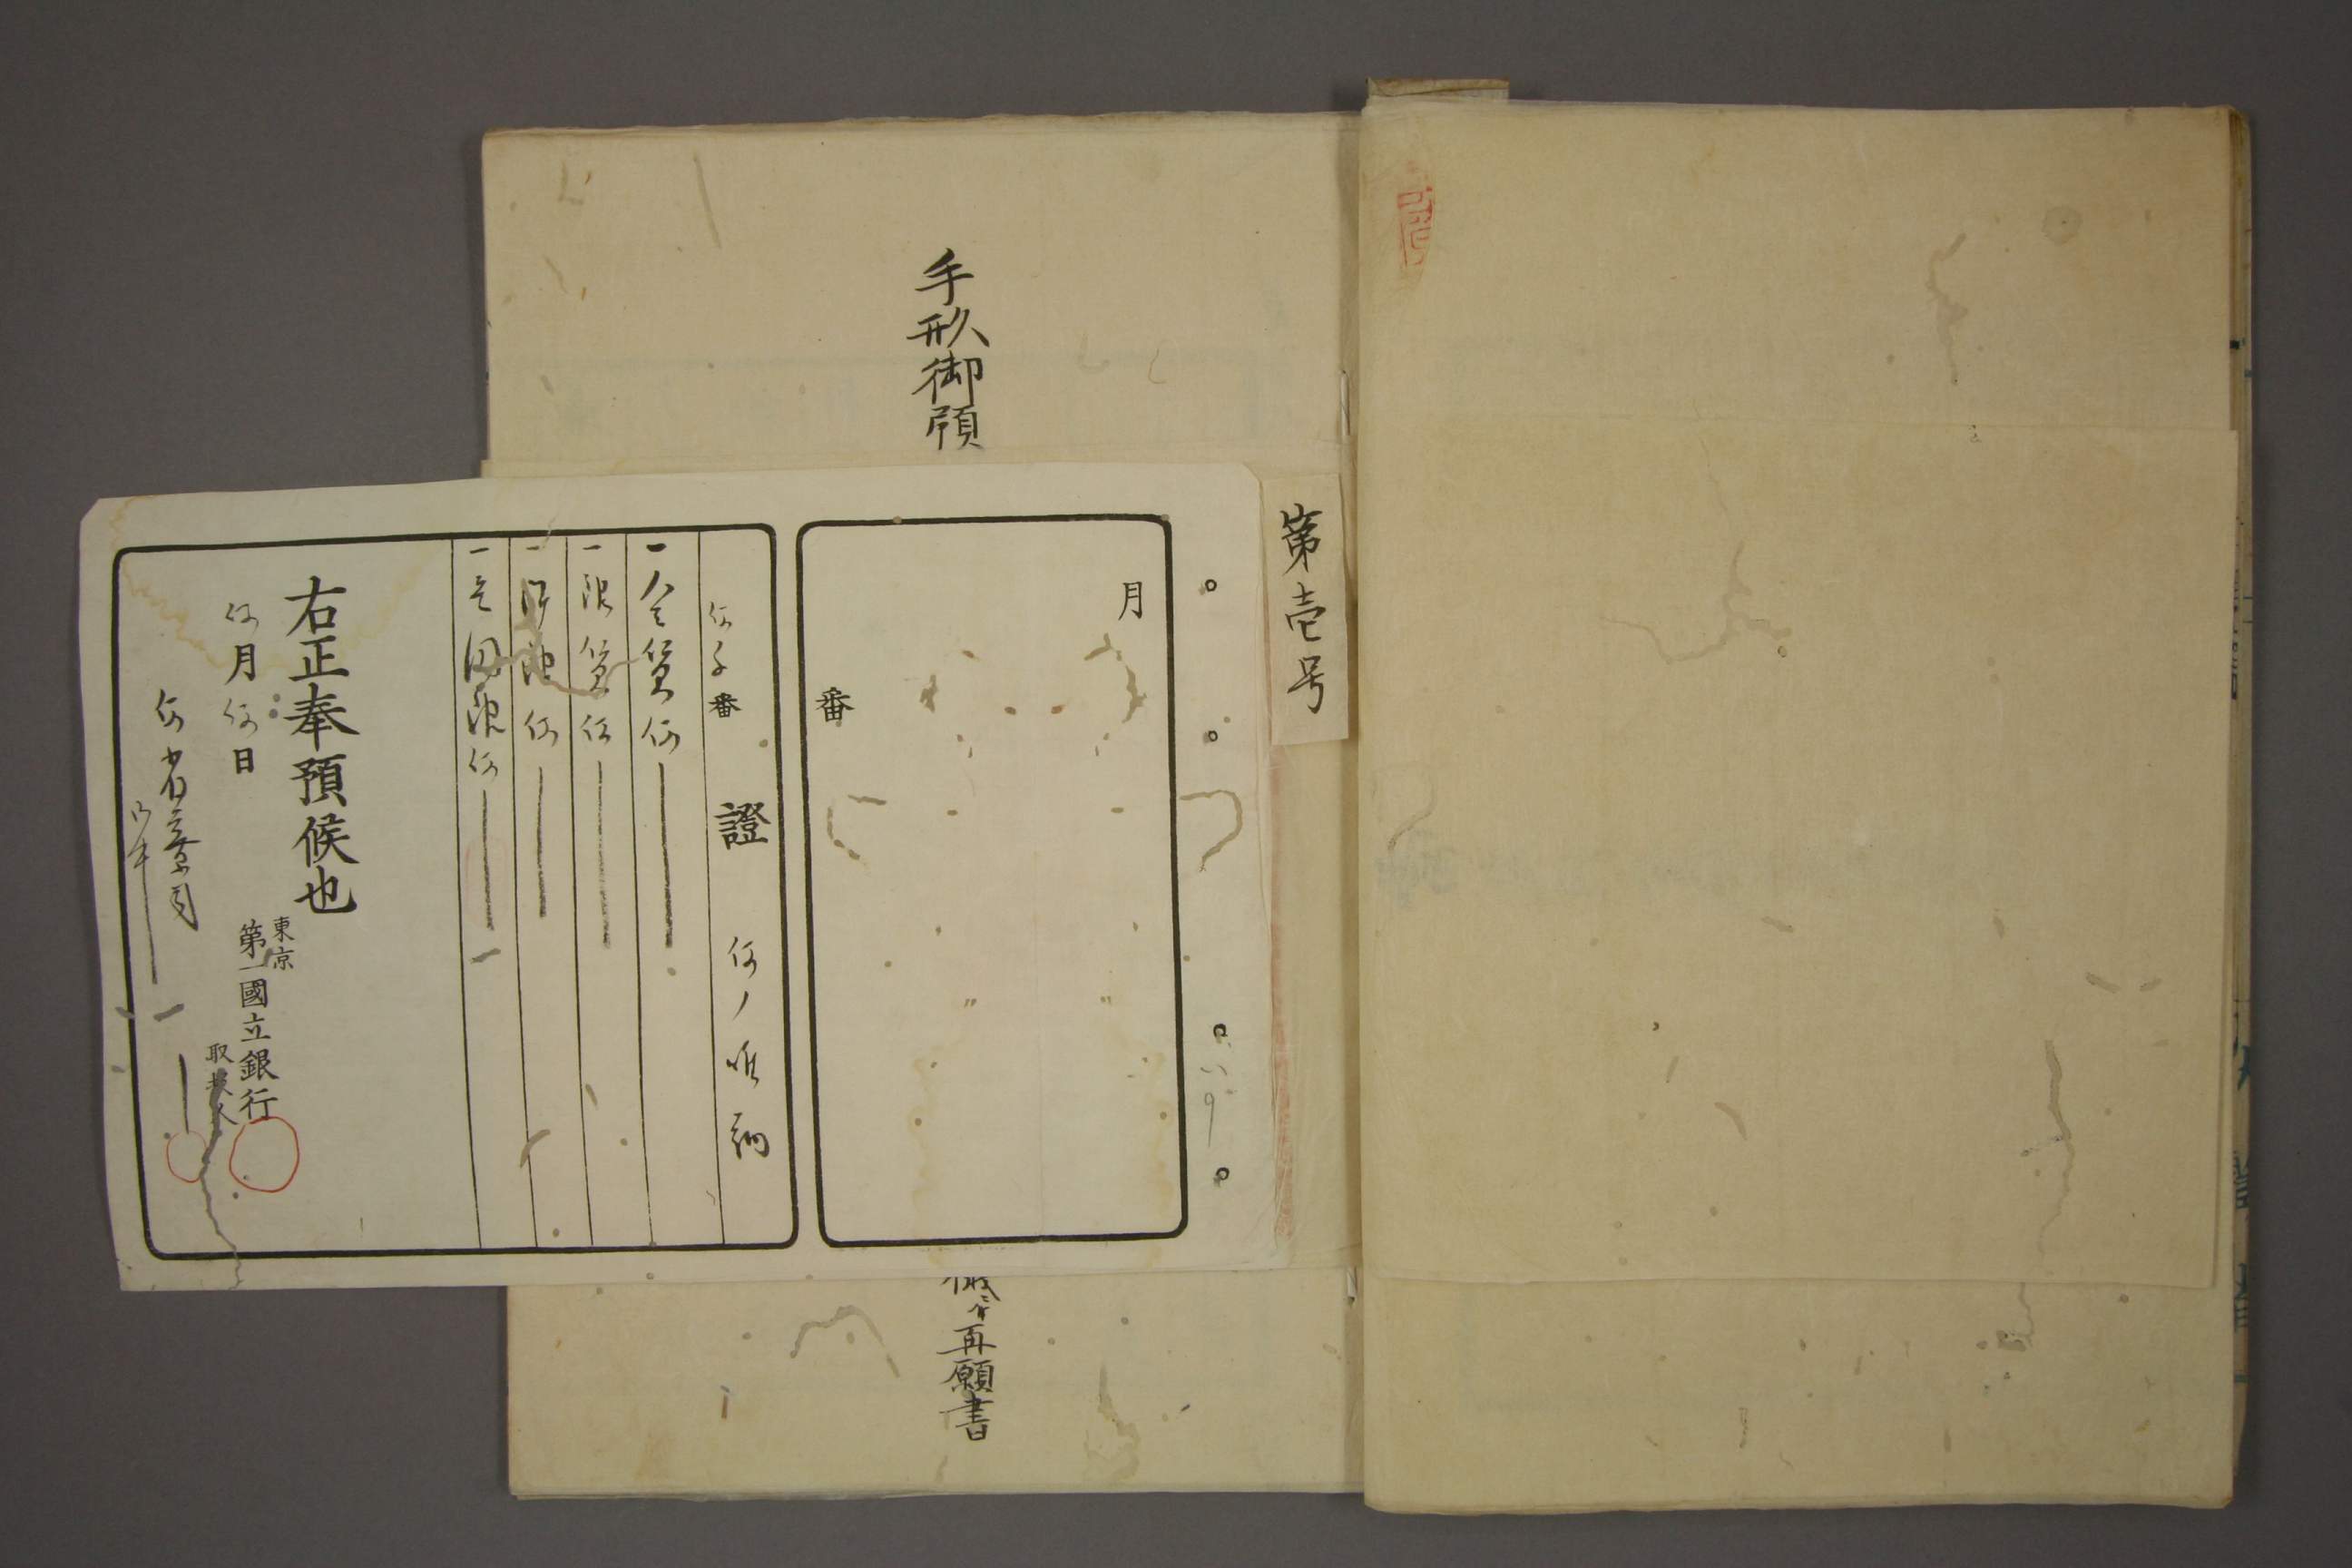 第壱号
月
番
證 何ノ唯納
何千番
一金貨何
一銀貨何
一洋銀何
一文困銀何
右正奉預候也
何月何日
東京
第一國立銀行
取扱人
何省寮司
御中
手形御預
再願書